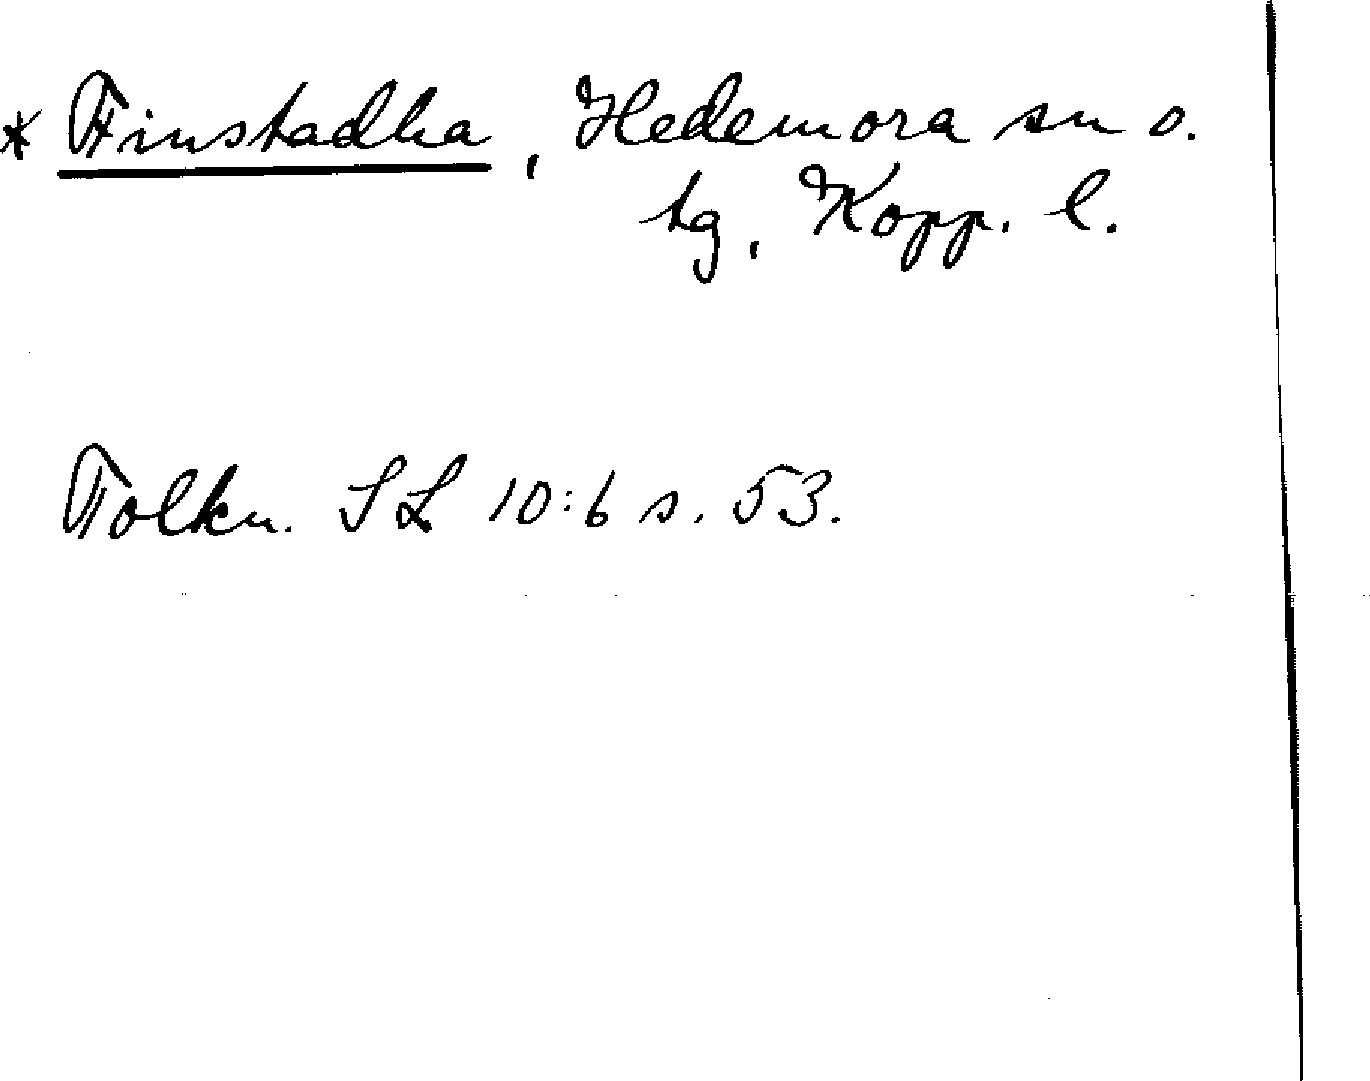 * Finstadha, Hedemora sn o.
tg, Kopp. l.
Tolkn. SL 10:6 s. 53.